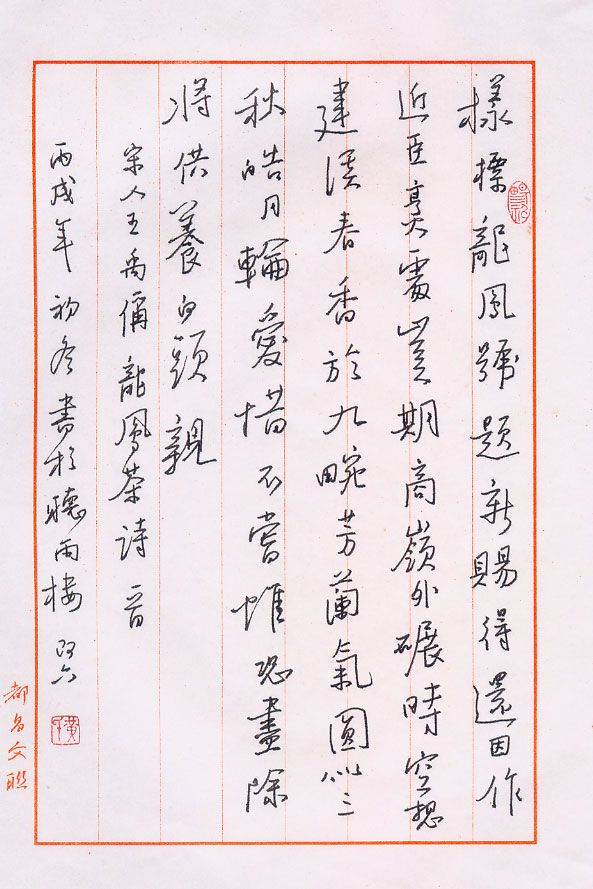 樣標龍鳳號題新賜得還因作
近臣烹處豈期商嶺外碾時空想
建溪春香於九畹芳蘭氣圓似三
秋皓月輪愛惜不嘗惟恐盡除
將供養白頭親
宋人王禹偁龍鳳茶詩一首
丙戌年初冬書於聽雨樓
都昌文聯